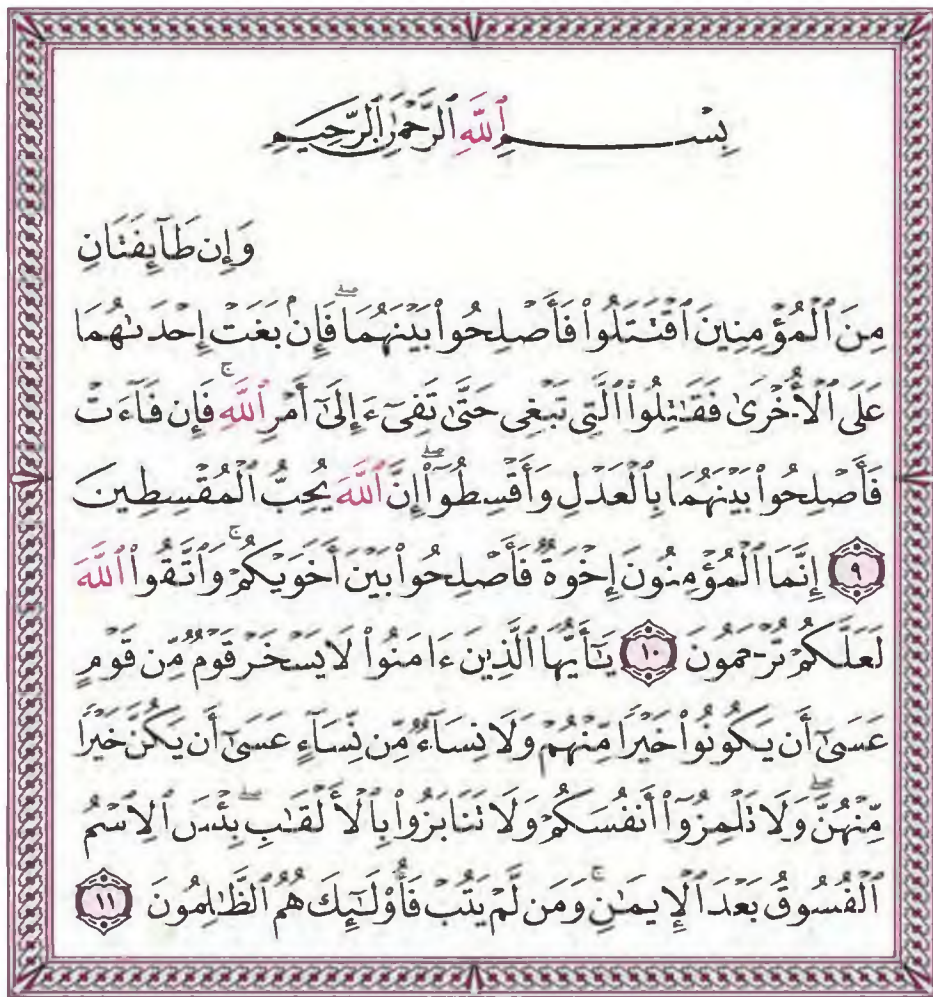 بِسْمِ ٱللَّهِ ٱلرَّحْمَٰنِ ٱلرَّحِيمِ
وَإِن طَآئِفَتَانِ
مِنَ ٱلْمُؤْمِنِينَ ٱقْتَتَلُوا۟ فَأَصْلِحُوا۟ بَيْنَهُمَا ۖ فَإِنۢ بَغَتْ إِحْدَىٰهُمَا
عَلَى ٱلْأُخْرَىٰ فَقَٰتِلُوا۟ ٱلَّتِى تَبْغِى حَتَّىٰ تَفِىٓءَ إِلَىٰٓ أَمْرِ ٱللَّهِ ۚ فَإِن فَآءَتْ
فَأَصْلِحُوا۟ بَيْنَهُمَا بِٱلْعَدْلِ وَأَقْسِطُوٓا۟ ۖ إِنَّ ٱللَّهَ يُحِبُّ ٱلْمُقْسِطِينَ
٩ إِنَّمَا ٱلْمُؤْمِنُونَ إِخْوَةٌ فَأَصْلِحُوا۟ بَيْنَ أَخَوَيْكُمْ ۚ وَٱتَّقُوا۟ ٱللَّهَ
لَعَلَّكُمْ تُرْحَمُونَ ١٠ يَٰٓأَيُّهَا ٱلَّذِينَ ءَامَنُوا۟ لَا يَسْخَرْ قَوْمٌ مِّن قَوْمٍ
عَسَىٰٓ أَن يَكُونُوا۟ خَيْرًا مِّنْهُمْ وَلَا نِسَآءٌ مِّن نِّسَآءٍ عَسَىٰٓ أَن يَكُنَّ خَيْرًا
مِّنْهُنَّ ۖ وَلَا تَلْمِزُوٓا۟ أَنفُسَكُمْ وَلَا تَنَابَزُوا۟ بِٱلْأَلْقَٰبِ ۖ بِئْسَ ٱلِٱسْمُ
ٱلْفُسُوقُ بَعْدَ ٱلْإِيمَٰنِ ۚ وَمَن لَّمْ يَتُبْ فَأُو۟لَٰٓئِكَ هُمُ ٱلظَّٰلِمُونَ ١١